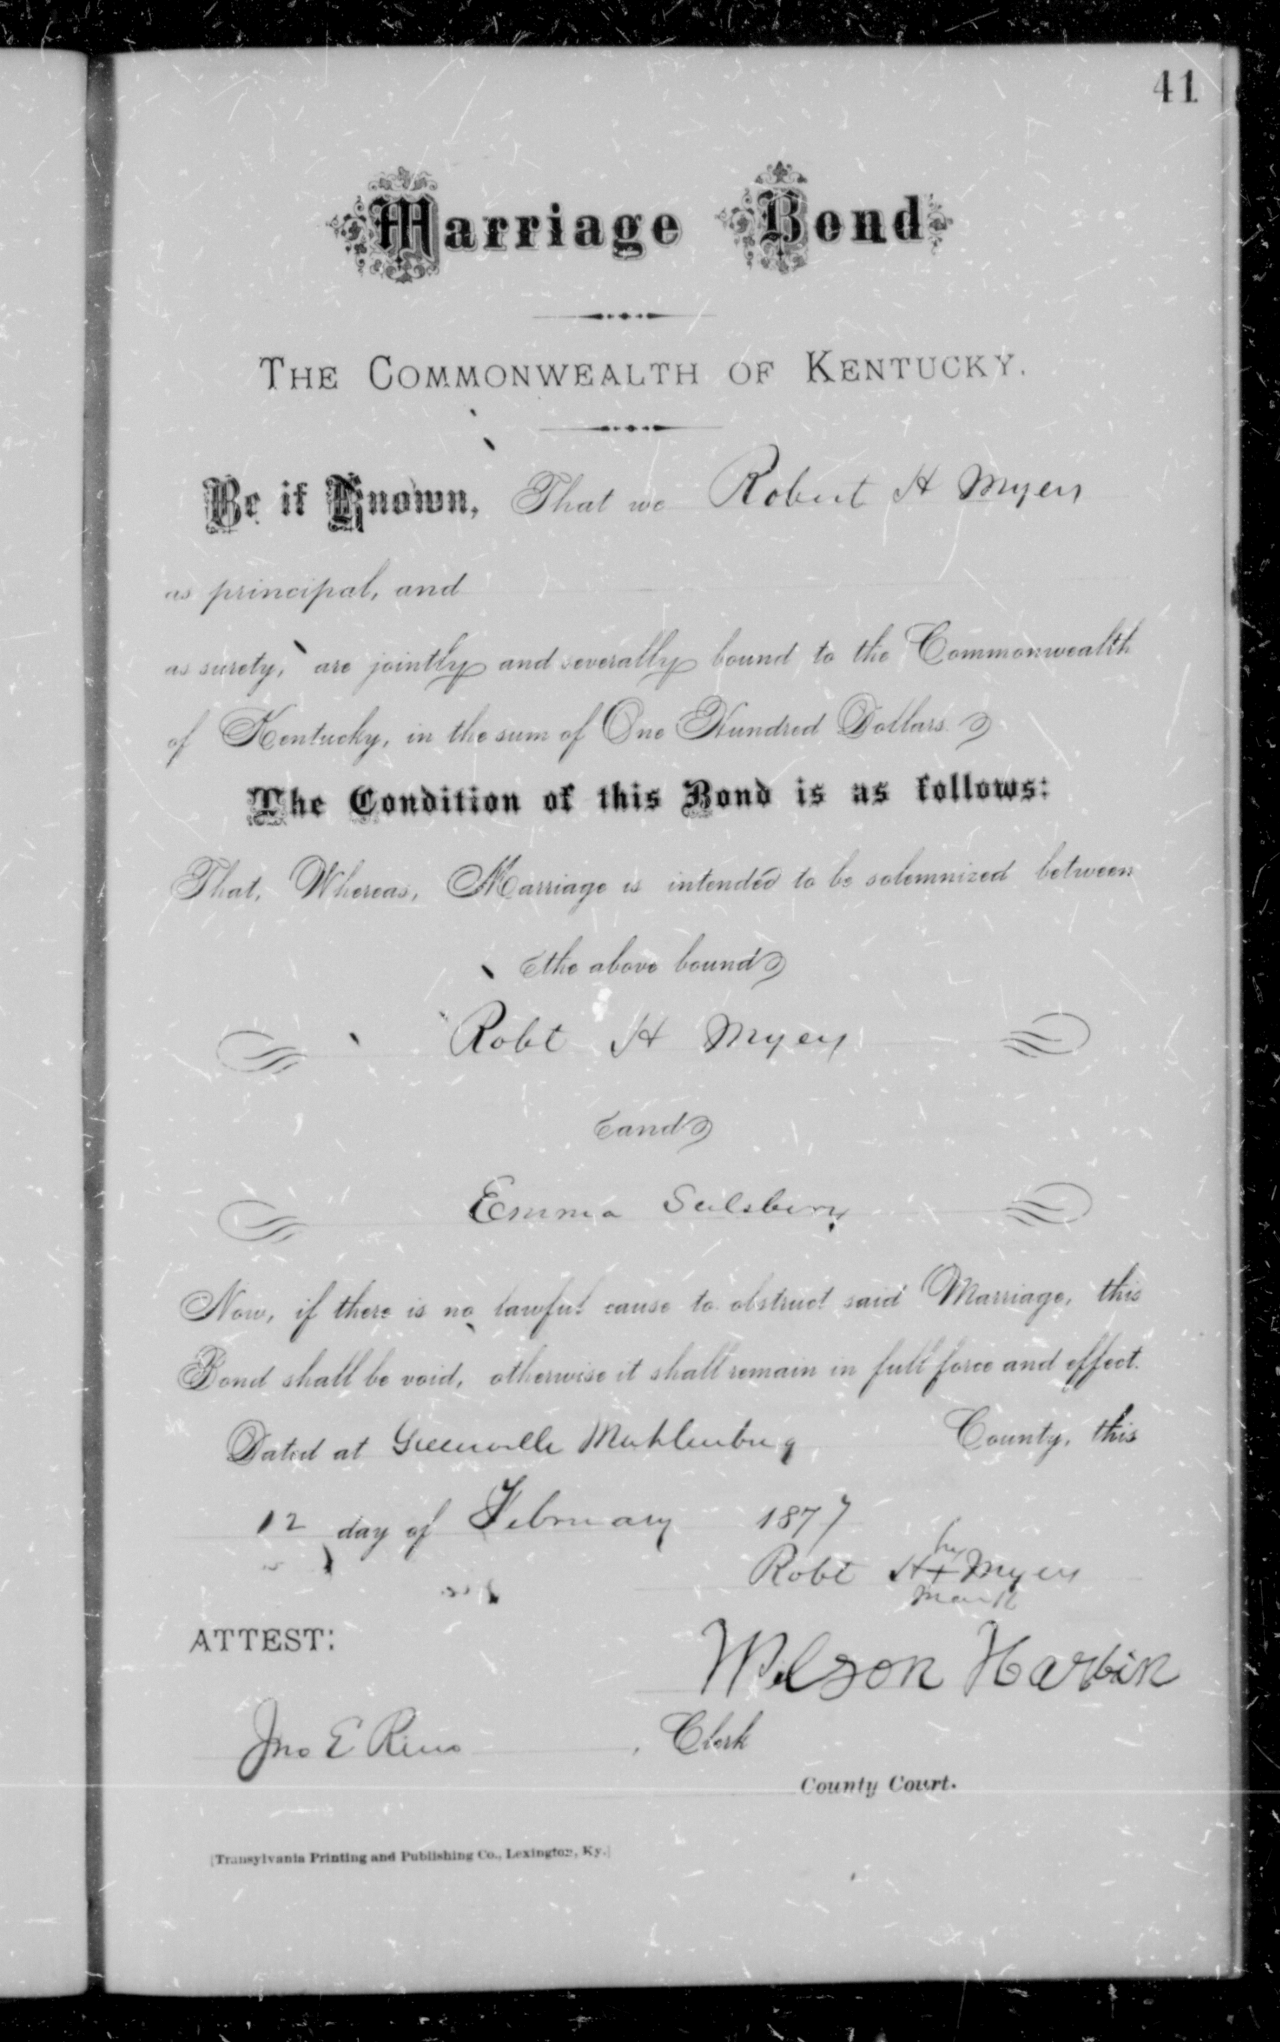 41
Marriage Bond
THE COMMONWEALTH OF KENTUCKY.
Be it Known, That we Robert H Myers
as principal, and
as surety, are jointly and severally bound to the Commonwealth
of Kentucky, in the sum of One Hundred Dollars.
The Condition of this Bond is as follows:
That, Whereas, Marriage is intended to be solemnized between
the above bound
Robt H Myers
and
Emma
Now, if there is no lawful cause to obstruct said Marriage, this
Bond shall be void, otherwise it shall remain in full force and effect.
Dated at Greenville Muhlenburg County, this
12 day of February 1877
his
Robt H + Myers
mark
ATTEST:
Wilson Harbin
Jno E Reno, Clerk
County Court.
[Transylvania Printing and Publishing Co., Lexington, Ky.]